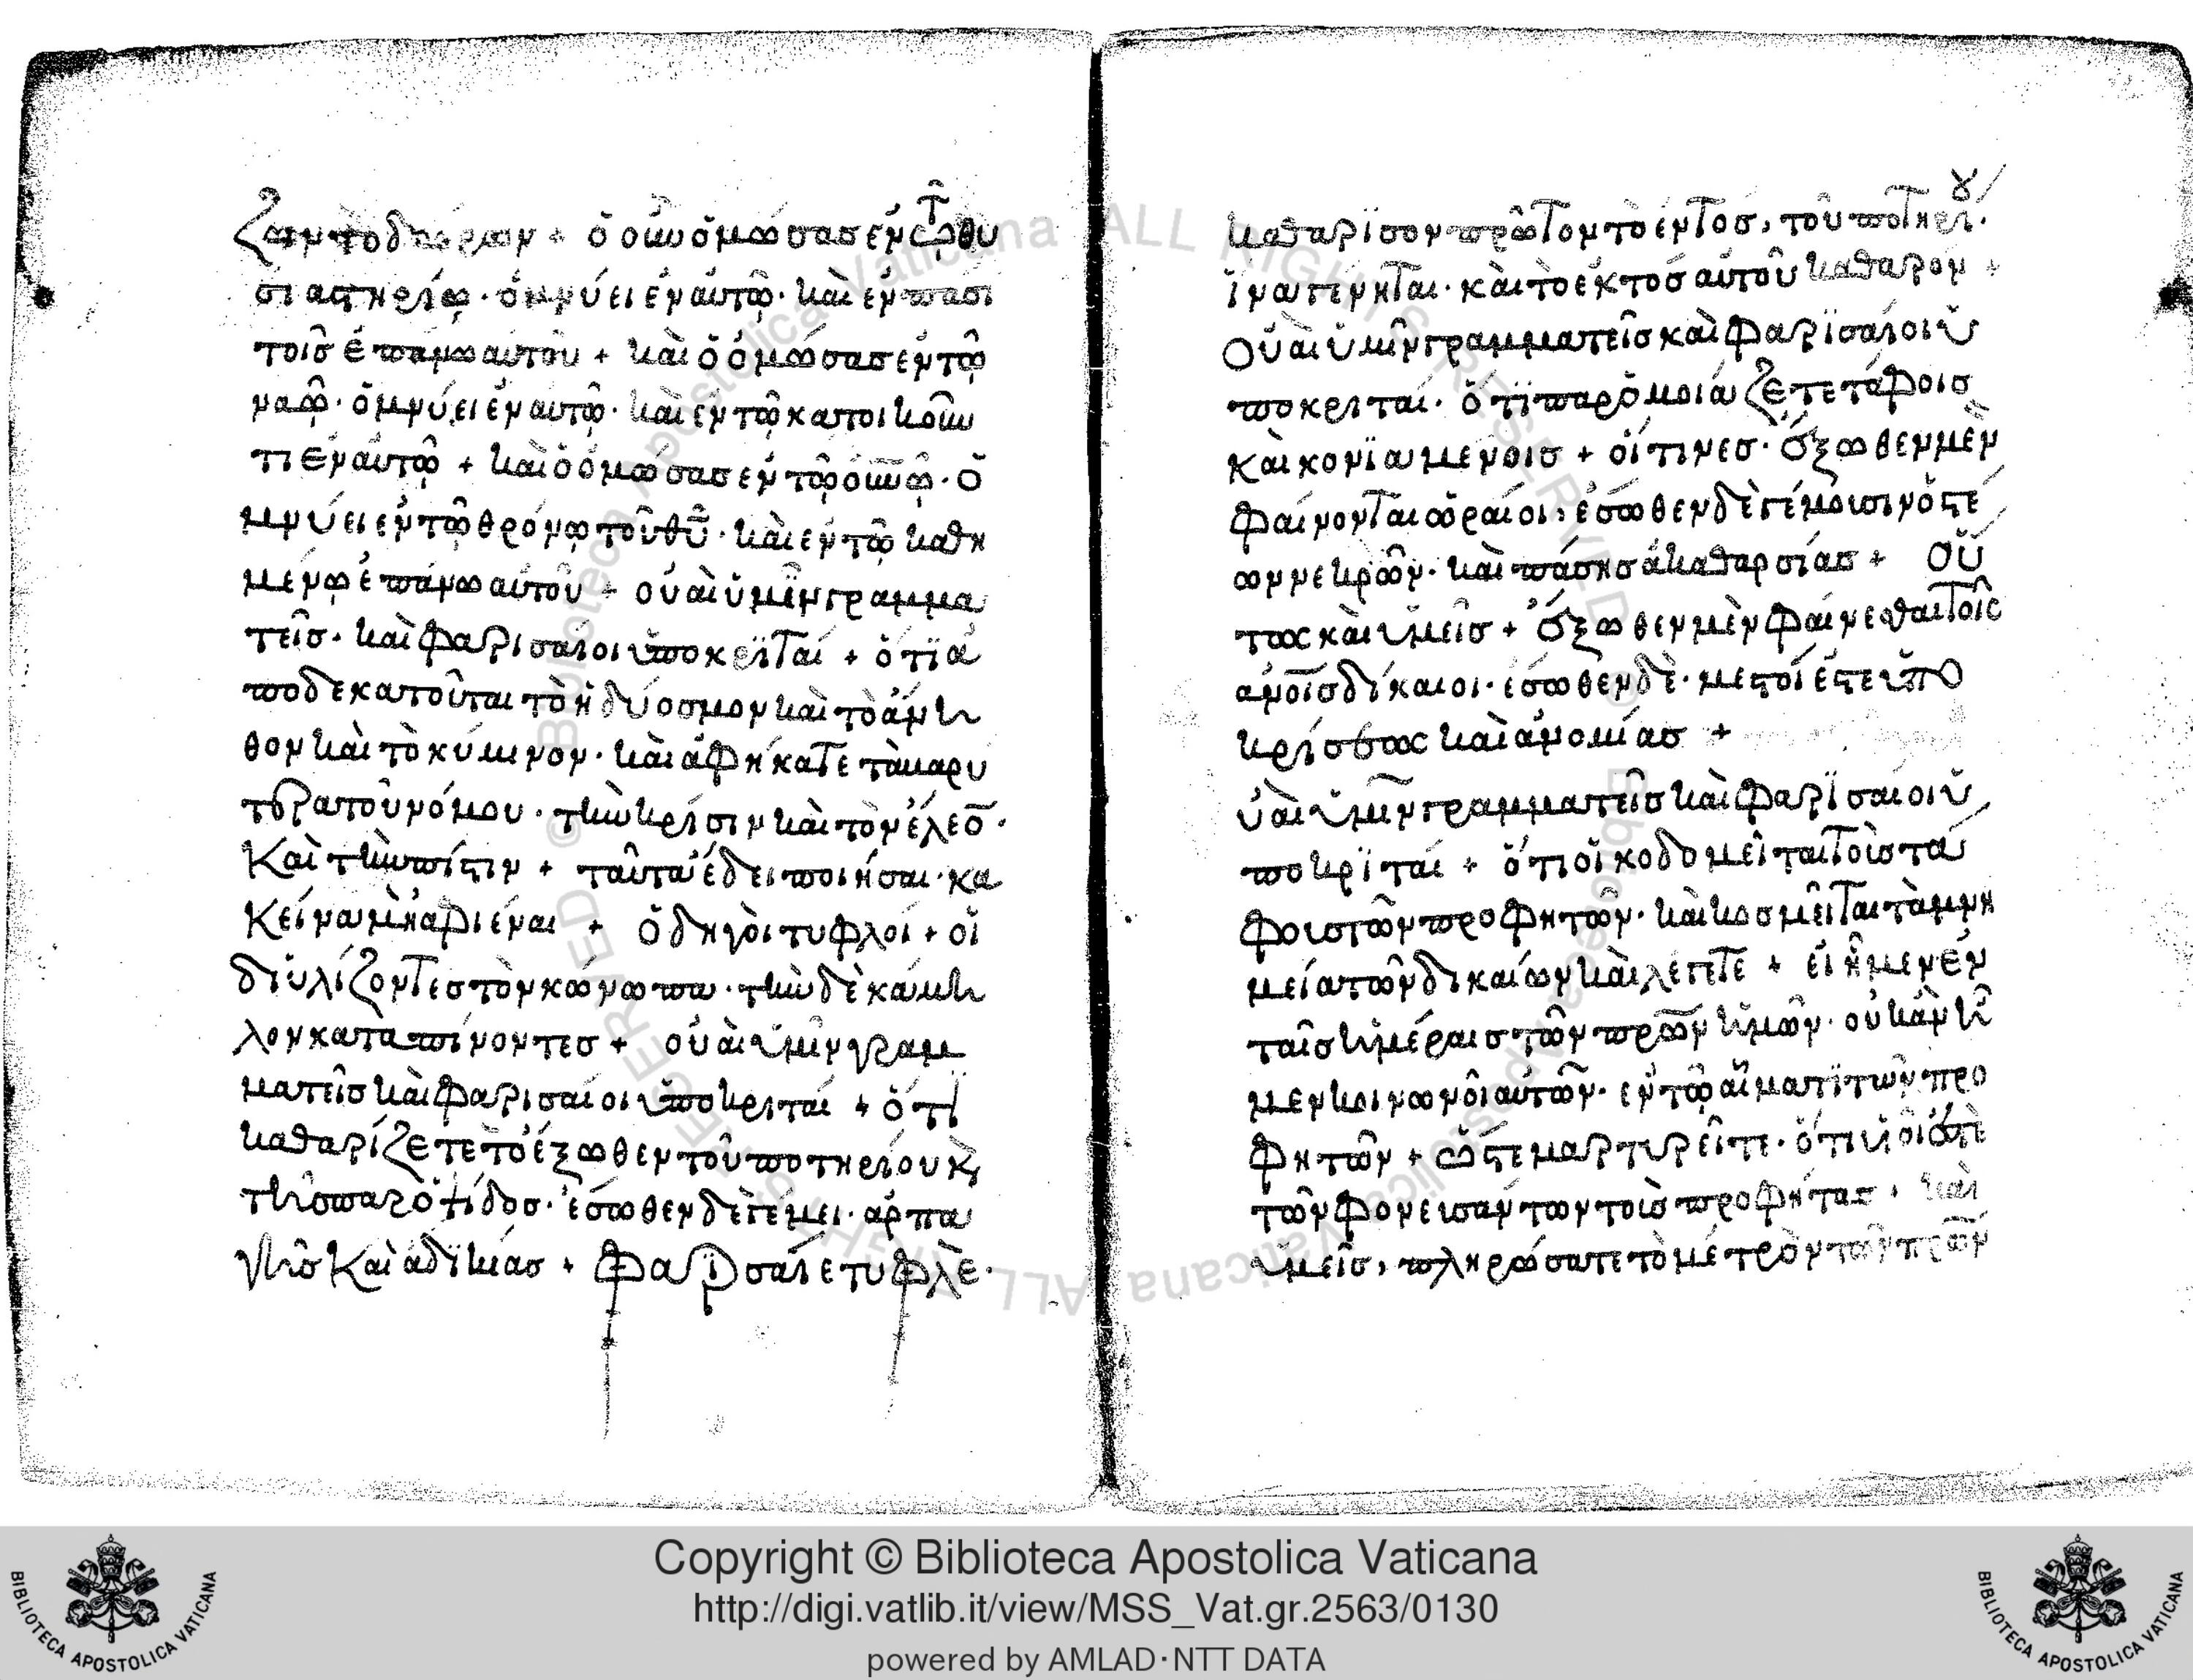 ζον τὸ δῶρον + ὁ οὖν ὁμώσας ἐν τῷ θυ
σιαστηρίῳ · ὀμνύει ἐν αὐτῷ · καὶ ἐν πᾶσι
τοῖς ἐπάνω αὐτοῦ + καὶ ὁ ὁμώσας ἐν τῷ
ναῷ · ὀμνύει ἐν αὐτῷ · καὶ ἐν τῷ κατοικοῦν
τι ἐν αὐτῷ + καὶ ὁ ὁμώσας ἐν τῷ οὐνῷ · ὀ
μνύει ἐν τῷ θρόνῳ τοῦ θῦ · καὶ ἐν τῷ καθη
μένῳ ἐπάνω αὐτοῦ + οὐαὶ ὑμῖν γραμμα
τεῖσ · καὶ φαρισαίοι ὑποκρϊταί + ὅτϊ ἀ
ποδεκατοῦται τὸ ἡδύοσμον καὶ τὸ ἄνη
θον καὶ τὸ κύμινον · καὶ ἀφήκατε τὰ βαρύ
τερα τοῦ νόμου · τὴν κρίσιν καὶ τὸν ἔλεο ·
Καὶ τὴν πίστιν + ταῦτα ἔδει ποιῆσαι · κα
κείνα μὴ ἀφιέναι + ὁδηγοὶ τυφλοί + οἱ
διϋλίζοντες τὸν κώνωπα · τὴν δὲ κάμη
λον καταπίνοντες + οὐαὶ ὑμῖν γραμ
ματεῖς καὶ φαρισαίοι ὑποκριταί + ὅτι
καθαρίζετε τὸ ἔξωθεν τοῦ ποτηρίου κ
τῆς παροψίδος · ἔσωθεν δὲ γέμει · ἁρπα
γῆς Καὶ ἀδϊκίας + Φαρϊσαίε τυφλὲ ·
καθαρϊσον πρῶτον τὸ ἐντός, τοῦ ποτηρίου
ἵνα γένηται · καὶ τὸ ἐκτὸς αὐτοῦ καθαρόν +
Οὐαὶ ὑμῖν γραμματεῖς καὶ φαρϊσαίοι ὑ
ποκριταί · ὅτϊ παρομοιάζετε τάφοις
κεκονϊαμένοις + οἵτινες · ἔξωθεν μὲν
φαίνονται ὡραίοι, ἔσωθεν δὲ γέμουσιν ὀστέ
ων νεκρῶν · καὶ πάσης ἀκαθαρσίας + οὕ
τως καὶ ὑμεῖς + ἔξωθεν μὲν φαίνεσθαι τοῖς
ἀνοῖς δίκαιοι · ἔσωθεν δὲ · μεστοί ἐστε ὑπο
κρίσεως καὶ ἀνομίας +
ὐαὶ ὑμῖν γραμματεῖς καὶ φαρϊσαίοι ὑ
ποκρϊταί + ὅτι οἰκοδομεῖται τοὺς τά
φους τῶν προφητῶν · καὶ κοσμεῖται τὰ μνη
μεία τῶν δικαίων καὶ λέγετε + εἰ ἦμεν ἐν
ταῖς ἡμέραις τῶν πρων ἡμῶν · οὐκ ἂν ἦ
μεν κοινωνοὶ αὐτῶν · ἐν τῷ αἵματϊ τῶν προ
φητῶν + ὥστε μαρτυρεῖτε · ὅτι υἱοί ἐστὲ
τῶν φονευσάντων τοὺς προφήτας + καὶ
ὑμεῖς, πληρώσατε τὸ μέτρον τῶν πρων
Copyright © Biblioteca Apostolica Vaticana
http://digi.vatlib.it/view/MSS_Vat.gr.2563/0130
powered by AMLAD·NTT DATA
BIBLIOTECA APOSTOLICA VATICANA
BIBLIOTECA APOSTOLICA VATICANA